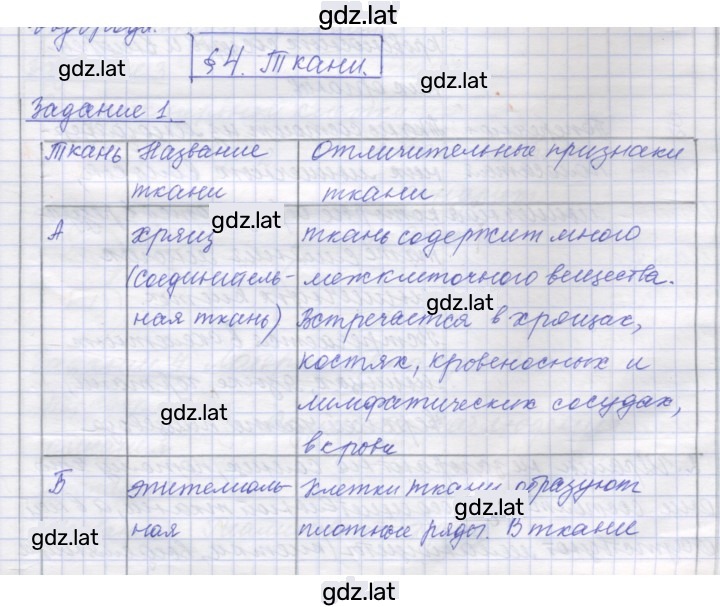 gdz.lat
§4. Ткани.
gdz.lat gdz.lat
Задание 1.
Ткань Название Отличительные признаки
ткани ткани
gdz.lat
А хрящ ткань содержит много
(соединитель- межклеточного вещества.
gdz.lat
ная ткань) Встречается в хрящах,
костях, кровеносных и
gdz.lat лимфатических сосудах,
в крови
Б эпителиаль- Клетки ткани образуют
gdz.lat
gdz.lat ная плотные ряды. В ткани
gdz.lat